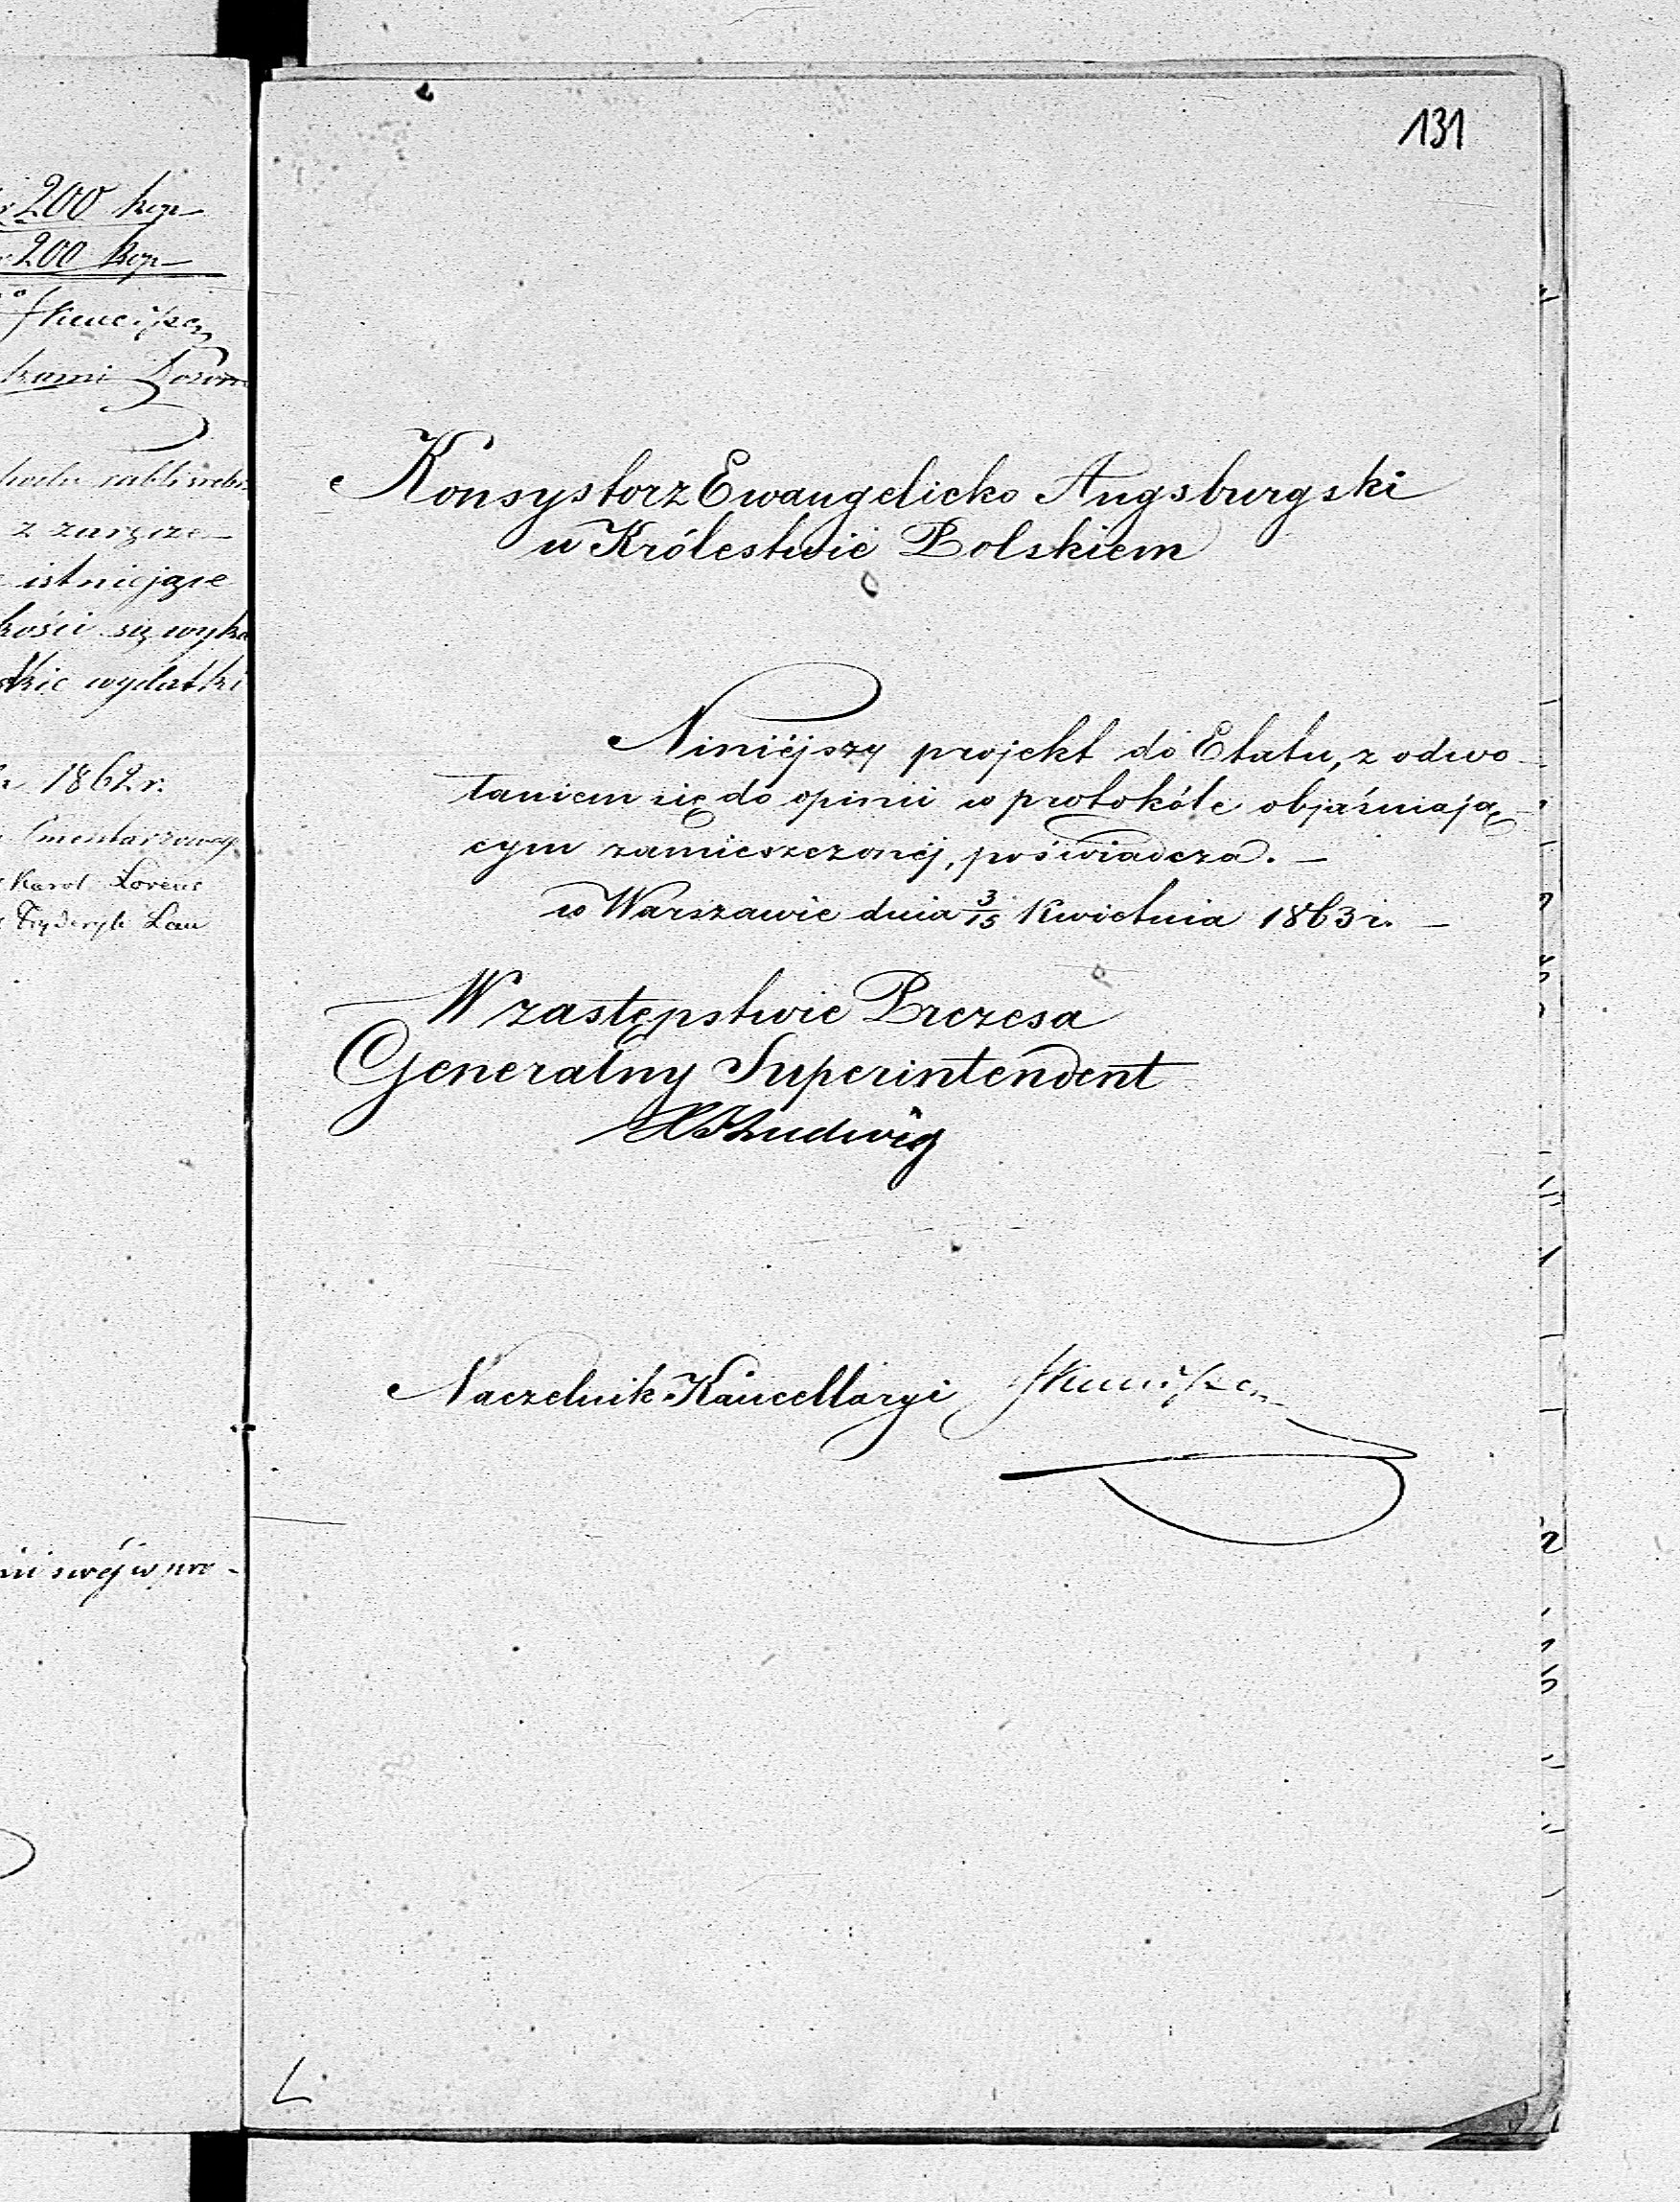 200 kop
200 kop
kami
z zaręcze-
istniejące
kości się wyka
wydatki
1862 r.
Cmentarzowy
Karol Lorenc
Fryderyk Lau
swéj w pro-
131
Konsystorz Ewangelicko Augsburgski
w Królestwie Polskiem
Niniéjszy projekt do Etatu, z odwo-
łaniem się do opinii w protokóle objaśniają-
cym zamieszczonéj, poświadcza. -
w Warszawie dnia 3/15 Kwietnia 1863 r. -
W zastępstwie Prezesa
Generalny Superintendent
Ludwig
Naczelnik Kancellaryi
L.